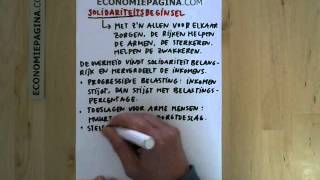 ECONOMIEPAGINA.COM
SOLIDARITEITSBEGINSEL
→ MET Z'N ALLEN VOOR ELKAAR
ZORGEN. DE RIJKEN HELPEN
DE ARMEN, DE STERKEREN
HELPEN DE ZWAKKEREN.
DE OVERHEID VINDT SOLIDARITEIT BELANG-
RIJK EN HERVERDEELT DE INKOMENS.
• PROGRESSIEVE BELASTING: INKOMEN
STIJGT, DAN STIJGT MET BELASTINGS-
PERCENTAGE.
• TOESLAGEN VOOR ARME MENSEN:
HUURT ZORGTOESLAG.
• STEL
ECONOMIEPAGINA.COM